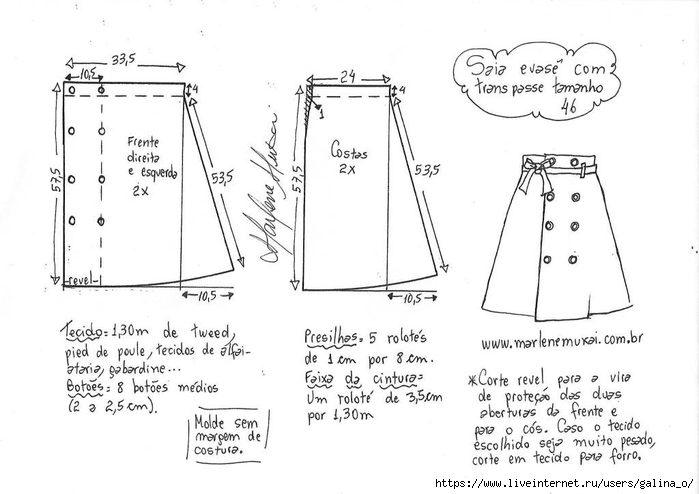 33,5
10,5
4
Frente
direita
e esquerda
2x
57,5
53,5
revel
10,5
24
4
1
Costas
2x
57,5
53,5
10,5
Marlene Mukai
Saia evasê com
transpasse tamanho
46
www.marlenemukai.com.br
Tecido= 1,30m de tweed,
pied de poule, tecidos de alfai-
ataria, gabardine...
Botões= 8 botões médios
(2 a 2,5 cm).
Molde sem
margem de
costura.
Presilhas= 5 rolotés
de 1 cm por 8 cm.
Faixa da cintura=
Um roloté de 3,5cm
por 1,30m
*Corte revel para a vira
de proteção das duas
aberturas da frente e
para o cós. Caso o tecido
escolhido seja muito pesado,
corte em tecido para forro.
https://www.liveinternet.ru/users/galina_o/